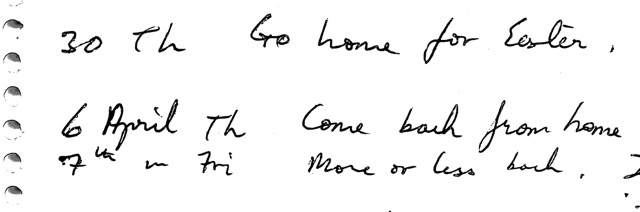 30 Th Go home for Easter.
6 April Th Come back from home
7th Fri More or less back.